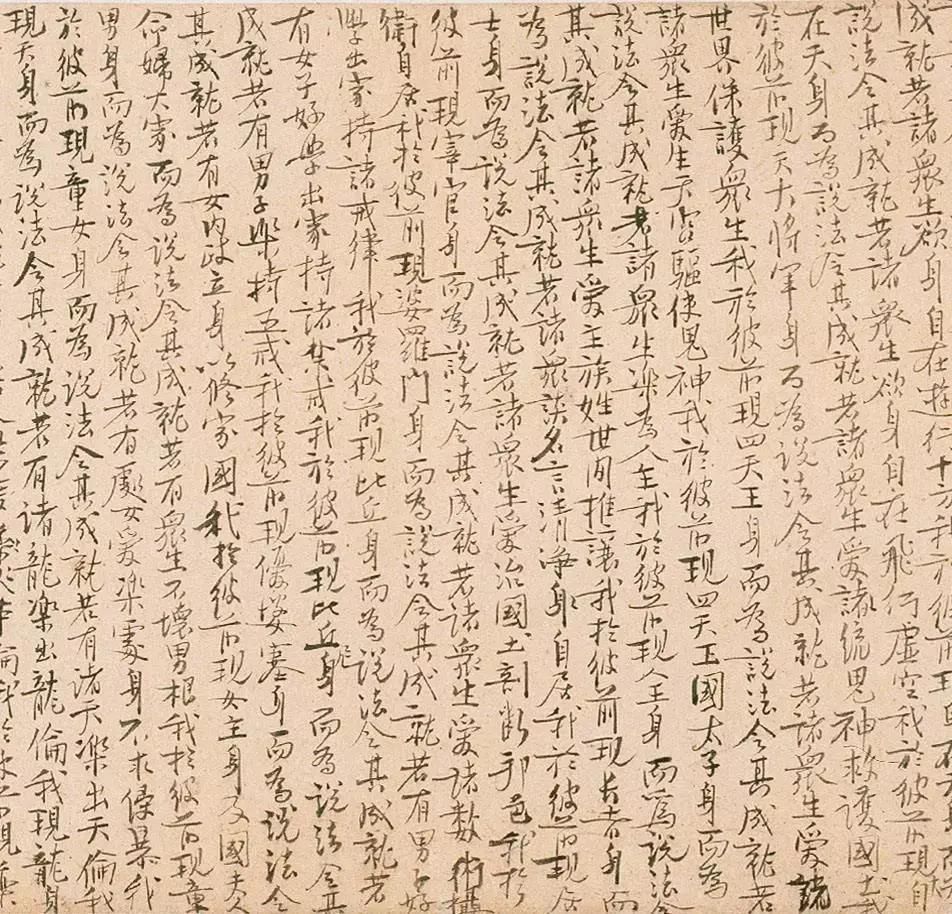 成就若諸眾生欲身自在遊行十方我於彼前現
說法令其成就若諸眾生欲身自在飛行虛空我於彼前現大自
在天身而為說法令其成就若諸眾生愛諸統鬼神救護國土我
於彼前現天大將軍身而為說法令其成就若諸眾生愛諸
世界保護眾生我於彼前現四天王身而為說法令其成就若
諸眾生愛生天宮驅使鬼神我於彼前現四天王國太子身而為
說法令其成就若諸眾生樂為人主我於彼前現人王身而為說法令
其成就若諸眾生愛主族姓世間推讓我於彼前現長者身而
為說法令其成就若諸眾談名言清淨身自居我於彼前現居
士身而為說法令其成就若諸眾生愛治國土剖斷邦邑我於
彼前現宰官身而為說法令其成就若諸眾生愛諸數術攝
衛身居我於彼前現婆羅門身而為說法令其成就若有男子好
學出家持諸戒律我於彼前現比丘身而為說法令其成就若
有女子好學出家持諸禁戒我於彼前現比丘尼身而為說法令其
成就若有男子樂持五戒我於彼前現優婆塞身而為說法令
其成就若有女內政立身以修家國我於彼前現女主身及國夫
命婦大家而為說法令其成就若有眾生不壞男根我於彼前現童
男身而為說法令其成就若有處女愛樂處身不求侵暴我
於彼前現童女身而為說法令其成就若有諸天樂出天倫我
現天身而為說法令其成就若有諸龍樂出龍倫我現龍身